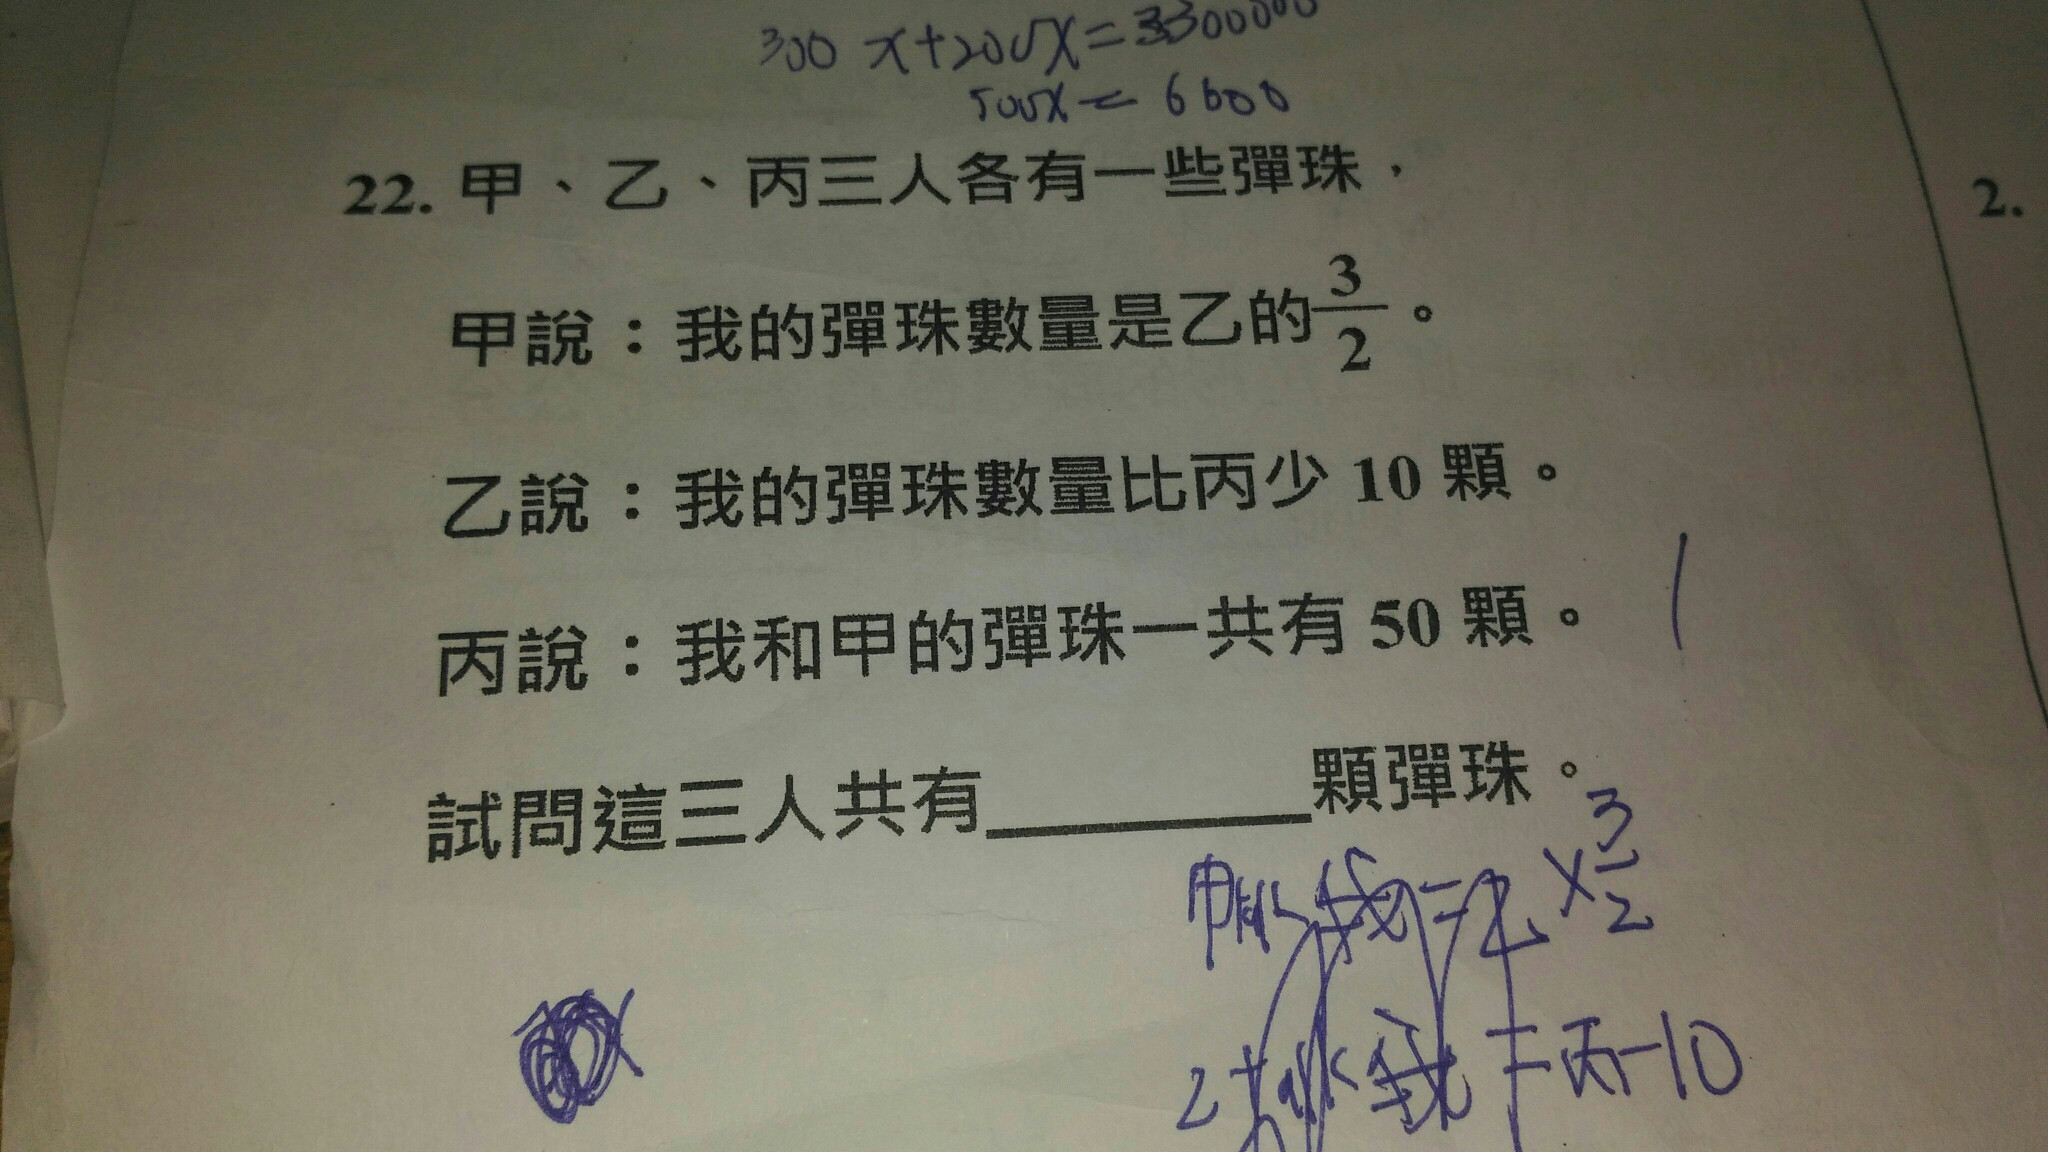 300 x+200x=3300000
500x=6600
22. 甲、乙、丙三人各有一些彈珠，
2.
甲說：我的彈珠數量是乙的3/2。
乙說：我的彈珠數量比丙少 10 顆。
丙說：我和甲的彈珠一共有 50 顆。
試問這三人共有＿＿＿＿顆彈珠。
我=乙×3/2
我=丙-10